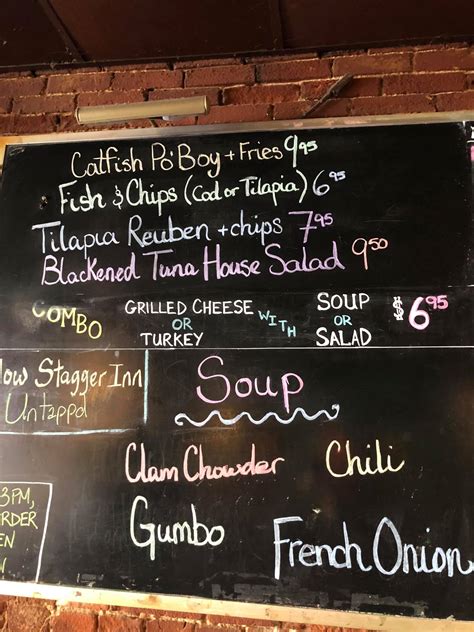 Catfish Po'Boy + Fries 9.95
Fish & Chips (Cod or Tilapia) 6.95
Tilapia Reuben + chips 7.95
Blackened Tuna House Salad 9.50
COMBO GRILLED CHEESE OR TURKEY WITH SOUP OR SALAD $6.95
ow Stagger Inn
Untappd
Soup
Clam Chowder
Chili
Gumbo
French Onion
3PM,
RDER
EN